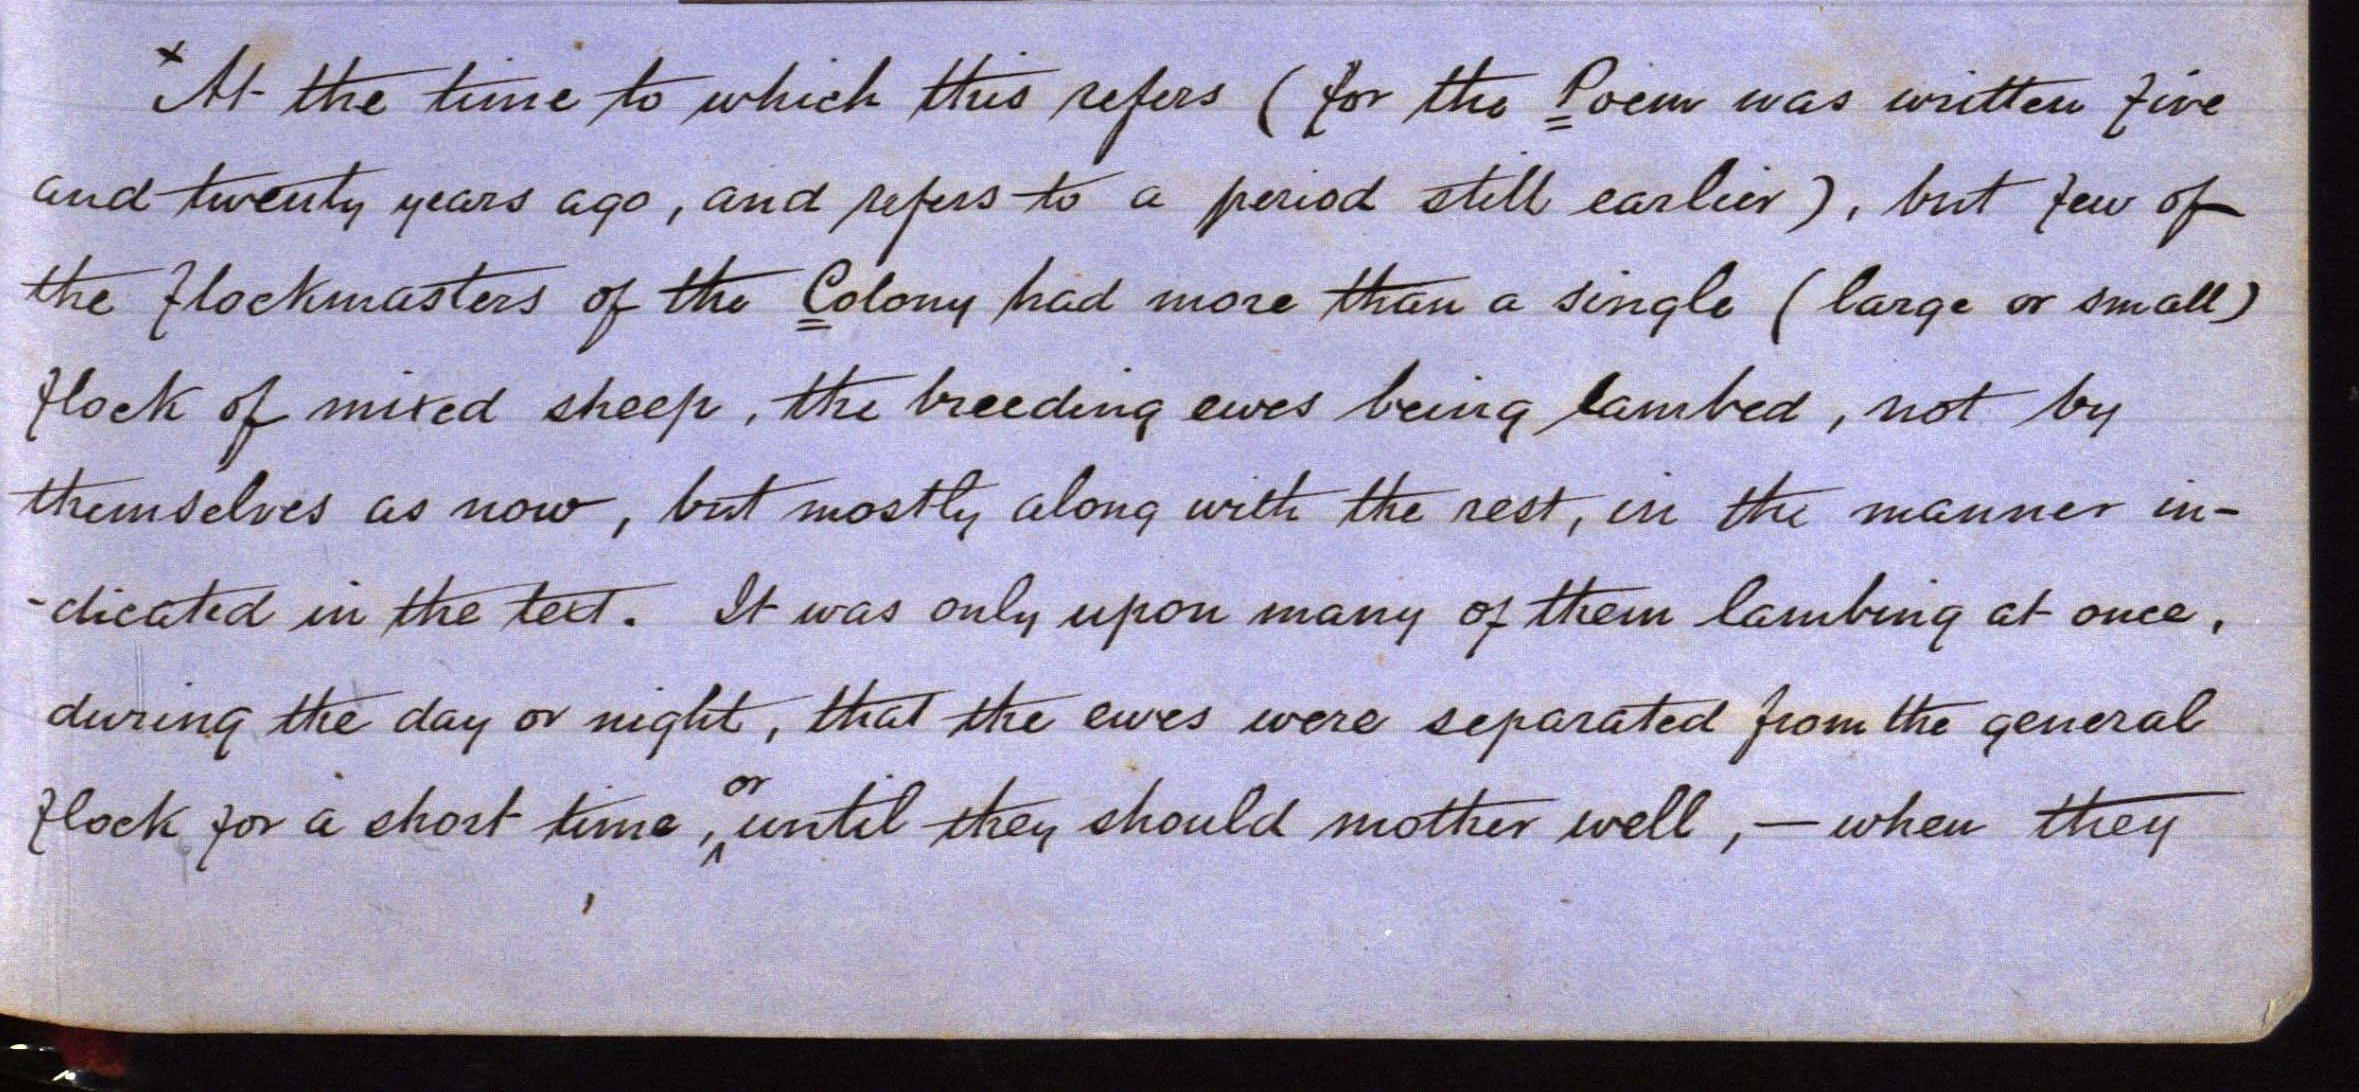 ×At the time to which this refers (for the Poem was written five
and twenty years ago, and refers to a period still earlier), but few of
the flockmasters of the Colony had more than a single (large or small)
flock of mixed sheep, the breeding ewes being lambed, not by
themselves as now, but mostly along with the rest, in the manner in-
-dicated in the text. It was only upon many of them lambing at once,
during the day or night, that the ewes were separated from the general
flock for a short time, or until they should mother well, — when they